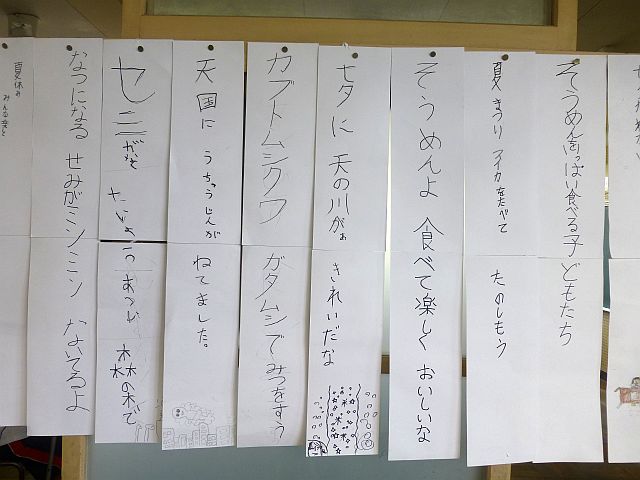 そうめんいっぱい食べる子どもたち
夏まつり アイカをたべて たのしもう
そうめんよ 食べて楽しく おいしいな
七夕に 天の川がぁ きれいだな
カブトムシクワ ガタムシで みつをすう
天国に うちゅうじんが ねてました。
セミがなく たいようの あつい 森林の木で
なつになる せみがミンミン ないてるよ
夏休み
みんな